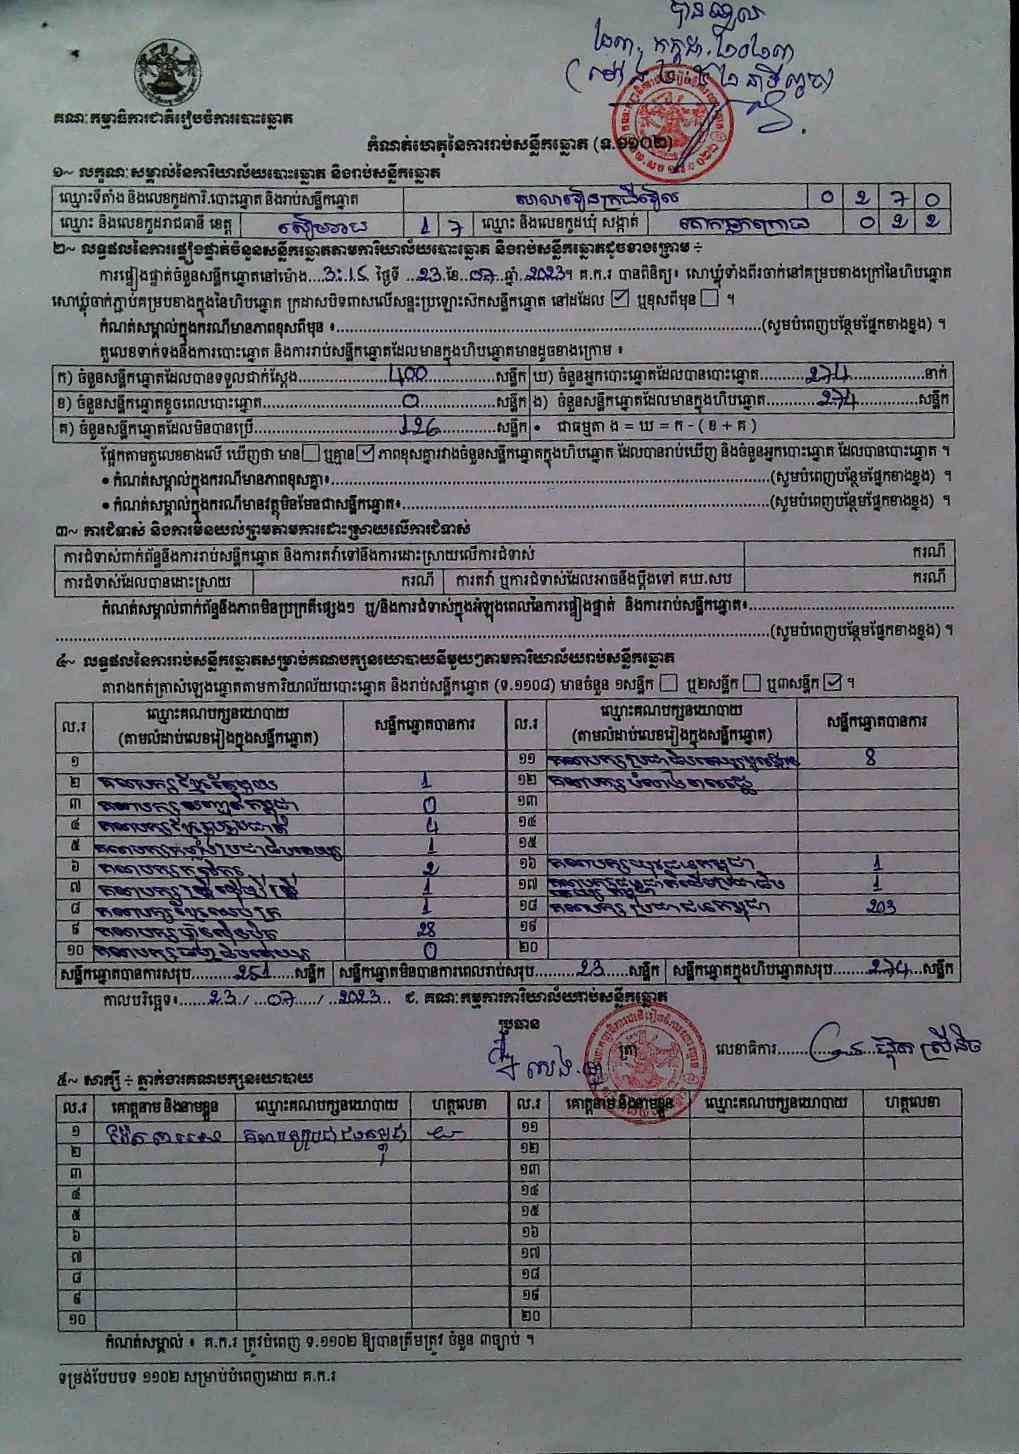 បានចូល
២៣. កក្កដា. ២០២៣
គណៈកម្មាធិការជាតិរៀបចំការបោះឆ្នោត
កំណត់ហេតុនៃការរាប់សន្លឹកឆ្នោត (ទ.១១០២)
១~ លក្ខណៈសម្គាល់នៃការិយាល័យបោះឆ្នោត និងរាប់សន្លឹកឆ្នោត
ឈ្មោះទីតាំង និងលេខកូដការិ.បោះឆ្នោត និងរាប់សន្លឹកឆ្នោត 0 2 7 0
ឈ្មោះ និងលេខកូដរាជធានី ខេត្ត សៀមរាប 1 7 ឈ្មោះ និងលេខកូដឃុំ សង្កាត់ គោកធ្លកក្រោម 0 2 2
២~ លទ្ធផលនៃការផ្ទៀងផ្ទាត់ចំនួនសន្លឹកឆ្នោតតាមការិយាល័យបោះឆ្នោត និងរាប់សន្លឹកឆ្នោតដូចខាងក្រោម ÷
ការផ្ទៀងផ្ទាត់ចំនួនសន្លឹកឆ្នោតនៅម៉ោង...3:15 ថ្ងៃទី ..23.ខែ..07..ឆ្នាំ.2023។ គ.ក.រ បានពិនិត្យ៖ សោឃ្លុំទាំងពីរចាក់នៅគម្របខាងក្រៅនៃហិបឆ្នោត
សោឃ្លុំចាក់ភ្ជាប់គម្របខាងក្នុងនៃហិបឆ្នោត ក្រដាសបិទពាសលើសន្ទះប្រឡោះសឹកសន្លឹកឆ្នោត នៅដដែល ☑ ឬខុសពីមុន ☐ ។
កំណត់សម្គាល់ក្នុងករណីមានភាពខុសពីមុន ៖.....(សូមបំពេញបន្ថែមផ្នែកខាងខ្នង) ។
តួលេខទាក់ទងនឹងការបោះឆ្នោត និងការរាប់សន្លឹកឆ្នោតដែលមានក្នុងហិបឆ្នោតមានដូចខាងក្រោម ៖
ក) ចំនួនសន្លឹកឆ្នោតដែលបានទទួលជាក់ស្តែង.....400.....សន្លឹក ឃ) ចំនួនអ្នកបោះឆ្នោតដែលបានបោះឆ្នោត.....274.....នាក់
ខ) ចំនួនសន្លឹកឆ្នោតខូចពេលបោះឆ្នោត.....0.....សន្លឹក ង) ចំនួនសន្លឹកឆ្នោតដែលមានក្នុងហិបឆ្នោត.....274.....សន្លឹក
គ) ចំនួនសន្លឹកឆ្នោតដែលមិនបានប្រើ.....126.....សន្លឹក • ជាធម្មតា ង = ឃ = ក - ( ខ + គ )
ផ្អែកតាមតួលេខខាងលើ ឃើញថា មាន ☐ ឬគ្មាន ☑ ភាពខុសគ្នារវាងចំនួនសន្លឹកឆ្នោតក្នុងហិបឆ្នោត ដែលបានរាប់ឃើញ និងចំនួនអ្នកបោះឆ្នោត ដែលបានបោះឆ្នោត ។
• កំណត់សម្គាល់ក្នុងករណីមានភាពខុសគ្នា៖.....(សូមបំពេញបន្ថែមផ្នែកខាងខ្នង) ។
• កំណត់សម្គាល់ក្នុងករណីមានវត្ថុមិនមែនជាសន្លឹកឆ្នោត៖.....(សូមបំពេញបន្ថែមផ្នែកខាងខ្នង) ។
៣~ ការជំទាស់ និងការមិនយល់ព្រមតាមការដោះស្រាយលើការជំទាស់
ការជំទាស់ពាក់ព័ន្ធនឹងការរាប់សន្លឹកឆ្នោត និងការតវ៉ាទៅនឹងការដោះស្រាយលើការជំទាស់ ករណី
ការជំទាស់ដែលបានដោះស្រាយ ករណី ការតវ៉ា ឬការជំទាស់ដែលអាចនឹងប្តឹងទៅ គឃ.សប ករណី
កំណត់សម្គាល់ពាក់ព័ន្ធនឹងភាពមិនប្រក្រតីផ្សេងៗ ឬ/និងការជំទាស់ក្នុងអំឡុងពេលនៃការផ្ទៀងផ្ទាត់ និងការរាប់សន្លឹកឆ្នោត៖.....
.....(សូមបំពេញបន្ថែមផ្នែកខាងខ្នង) ។
៤~ លទ្ធផលនៃការរាប់សន្លឹកឆ្នោតសម្រាប់គណបក្សនយោបាយនីមួយៗតាមការិយាល័យរាប់សន្លឹកឆ្នោត
តារាងកត់ត្រាសំឡេងឆ្នោតតាមការិយាល័យបោះឆ្នោត និងរាប់សន្លឹកឆ្នោត (ទ.១១០៨) មានចំនួន ១សន្លឹក ☐ ឬ២សន្លឹក ☐ ឬ៣សន្លឹក ☑ ។
ល.រ ឈ្មោះគណបក្សនយោបាយ (តាមលំដាប់លេខរៀងក្នុងសន្លឹកឆ្នោត) សន្លឹកឆ្នោតបានការ ល.រ ឈ្មោះគណបក្សនយោបាយ (តាមលំដាប់លេខរៀងក្នុងសន្លឹកឆ្នោត) សន្លឹកឆ្នោតបានការ
១ ១១ 8
២ គណបក្សខ្មែររួបរួម 1 ១២
៣ 0 ១៣
៤ គណបក្ស 4 ១៤
៥ គណបក្ស 1 ១៥
៦ គណបក្ស 2 ១៦ គណបក្សយុវជនកម្ពុជា 1
៧ គណបក្ស 1 ១៧ 1
៨ គណបក្ស 1 ១៨ គណបក្សប្រជាជនកម្ពុជា 203
៩ គណបក្សហ៊្វុនស៊ិនប៉ិច 28 ១៩
១០ គណបក្ស 0 ២០
សន្លឹកឆ្នោតបានការសរុប.....251.....សន្លឹក សន្លឹកឆ្នោតមិនបានការពេលរាប់សរុប.....23.....សន្លឹក សន្លឹកឆ្នោតក្នុងហិបឆ្នោតសរុប.....274...សន្លឹក
កាលបរិច្ឆេទ៖.....23./...07.../..2023.. ជ. គណៈកម្មការការិយាល័យរាប់សន្លឹកឆ្នោត
ប្រធាន
ត្រា លេខាធិការ.....
៥~ សាក្សី ÷ ភ្នាក់ងារគណបក្សនយោបាយ
ល.រ គោត្តនាម និងនាមខ្លួន ឈ្មោះគណបក្សនយោបាយ ហត្ថលេខា ល.រ គោត្តនាម និងនាមខ្លួន ឈ្មោះគណបក្សនយោបាយ ហត្ថលេខា
១ គណបក្សប្រជាជនកម្ពុជា ១១
២ ១២
៣ ១៣
៤ ១៤
៥ ១៥
៦ ១៦
៧ ១៧
៨ ១៨
៩ ១៩
១០ ២០
កំណត់សម្គាល់ ៖ គ.ក.រ ត្រូវបំពេញ ទ.១១០២ ឱ្យបានត្រឹមត្រូវ ចំនួន ៣ច្បាប់ ។
ទម្រង់បែបបទ ១១០២ សម្រាប់បំពេញដោយ គ.ក.រ